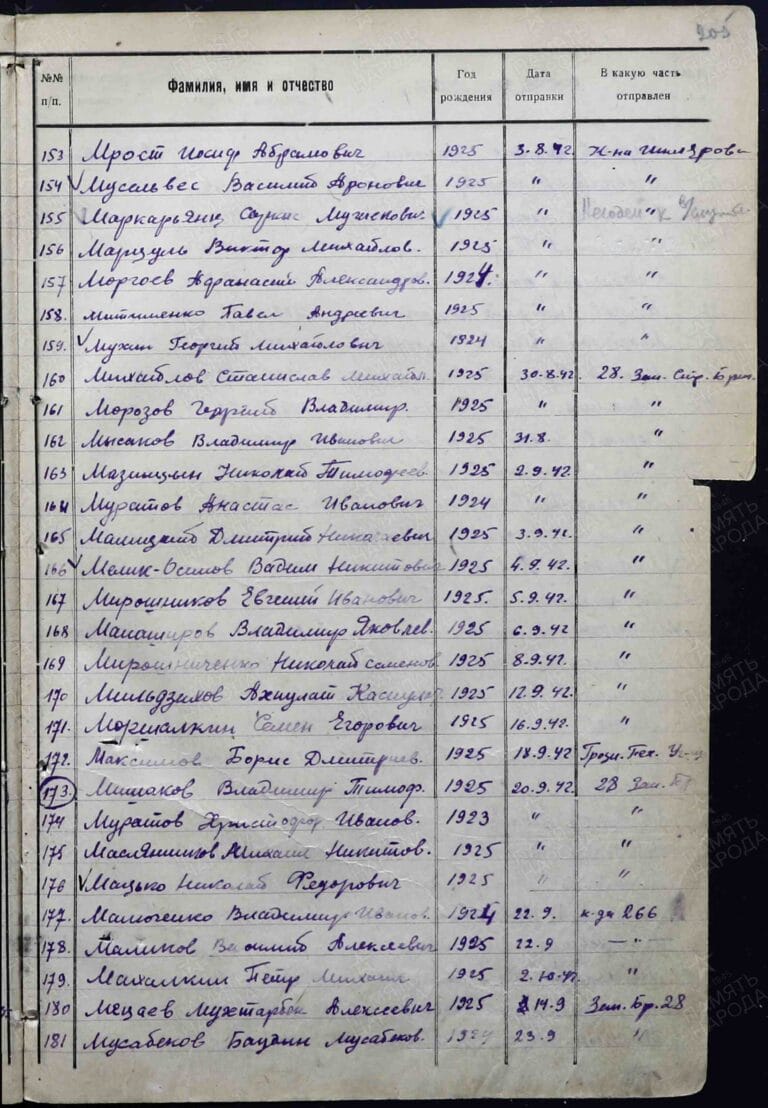 205
№№ п/п. Фамилия, имя и отчество Год рождения Дата отправки В какую часть отправлен
153 Мрост Иосиф Абрамович 1925 3.8.42.
154 Мусельвес Василий Аронович 1925 " "
155 Маркарьянц Саркис 1925 " "
156 Марцуль Виктор Михайлов. 1925 " "
157 Моргоев Афанасий Александров. 1924. " "
158. Митименко Павел Андреевич 1925 " "
159. Мухин Георгий Михайлович 1924 " "
160 Михайлов Станислав Михайл. 1925 30.8.42 28. Зап. Стр. Бриг.
161 Морозов Владимир. 1925 " "
162 Мысаков Владимир Иванович 1925 31.8. "
163 Николай Тимофеев. 1925 2.9.42. "
164 Муратов Анастас Иванович 1924 " "
165 Машицкий Дмитрий Николаевич 1925 3.9.42. "
166 Мелик-Осипов Вадим Никитович 1925 4.9.42. "
167 Мирошников Евгений Иванович 1925. 5.9.42. "
168 Манаширов Владимир Яковлев. 1925 6.9.42 "
169 Мирошниченко Николай Семенов. 1925 8.9.42. "
170 Мильдзихов Ахпулат 1925 12.9.42. "
171. Моршалкин Семен Егорович 1925 16.9.42. "
172. Максимов Борис Дмитриев. 1925 18.9.42 Грозн. Пех. Уч-щ
173. Мишаков Владимир Тимоф. 1925 20.9.42. 28 Зап. Бр
174 Муратов Христофор Иванов. 1923 " "
175 Маслянников Михаил Никитов. 1925 " "
176 Мацько Николай Федорович 1925 " "
177. Мамоченко Владимир Иванов. 1924 22.9. к-да 266
178. Маликов Василий Алексеевич 1925 22.9 — " —
179. Махалкин Петр 1925 2.10.42. "
180 Мецаев Мухтарбек Алексеевич 1925 14.9 Зап. Бр. 28
181 Мусабеков Баудин Мусабеков. 23.9 "